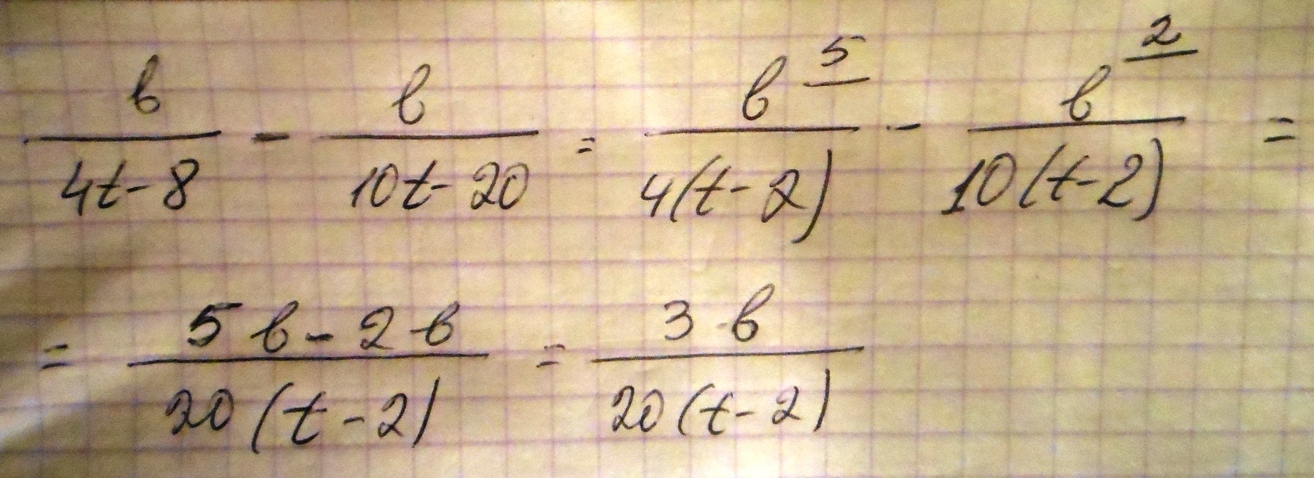 b/(4t-8) - b/(10t-20) = b^5/(4(t-2)) - b^2/(10(t-2)) =
= (5b-2b)/(20(t-2)) = 3b/(20(t-2))